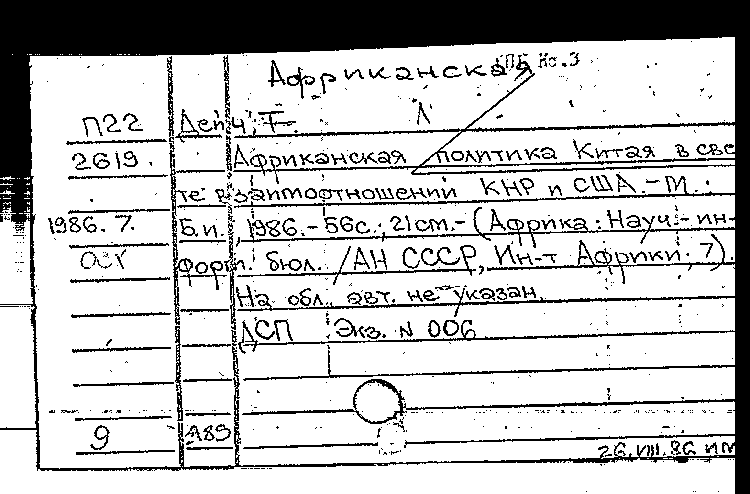 Африканска
КПБ No.3
П22 Дейч, Т. Л
2619. Африканская политика Китая в све
те взаимоотношений КНР и США. - М.:
1986.7. Б.и., 1986. - 56с.; 21см. - (Африка: Науч.-ин-
форм. бюл. / АН СССР, Ин-т Африки; 7).
На обл. авт. не указан.
ДСП Экз. N 006
9 А89
26.VIII.86